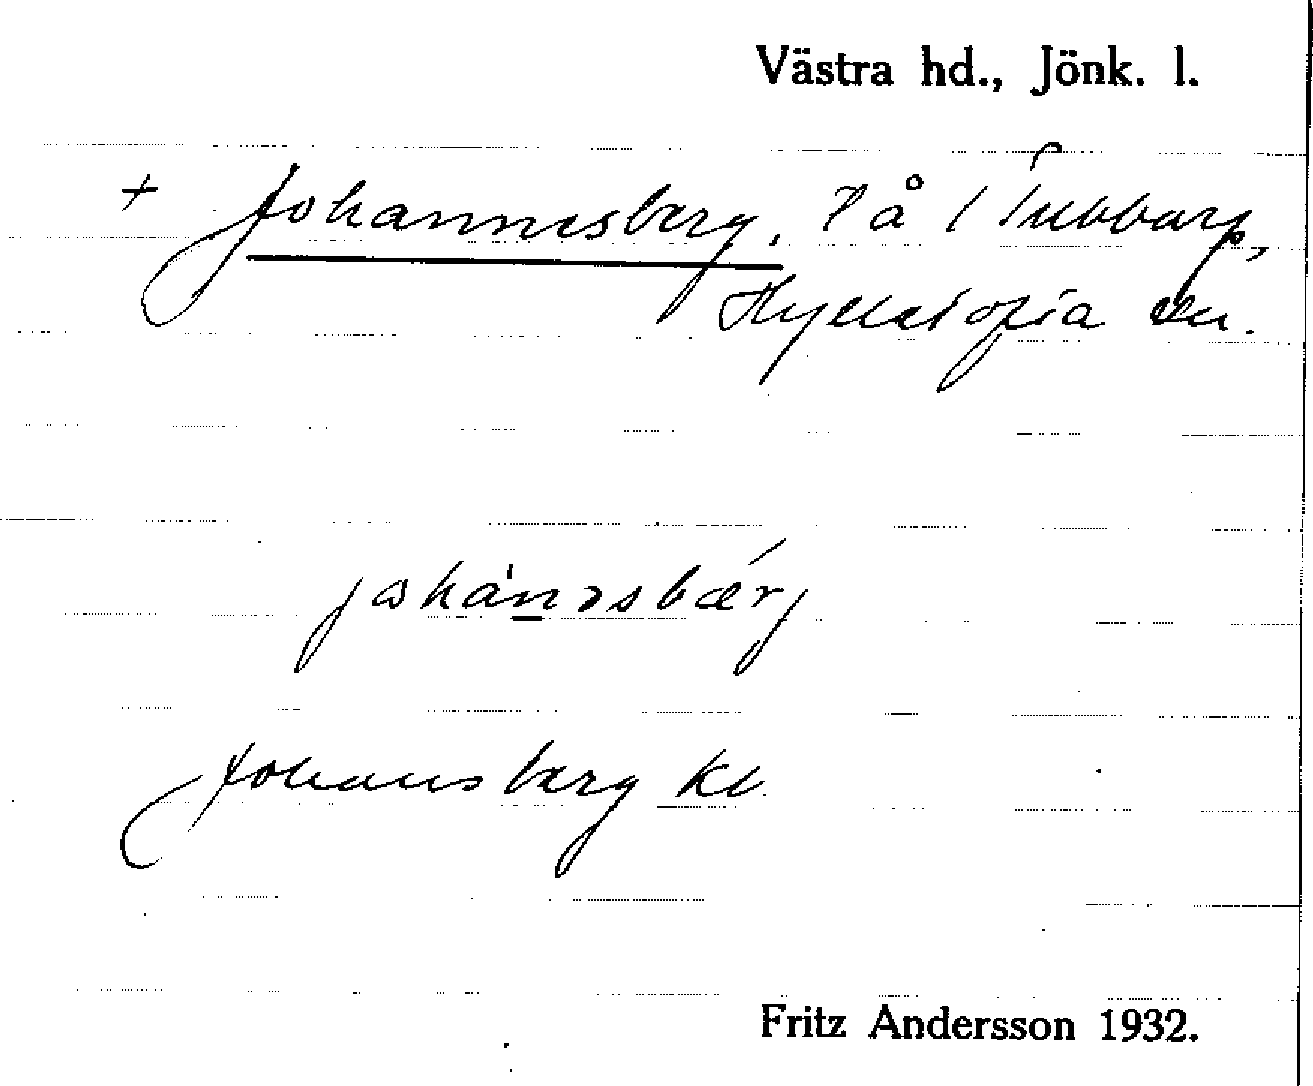 Västra hd., Jönk. l.
+ Johannesberg. på / Tubbarp,
Hylletofta sn.
johánəsbærj
Johansberg kb
Fritz Andersson 1932.